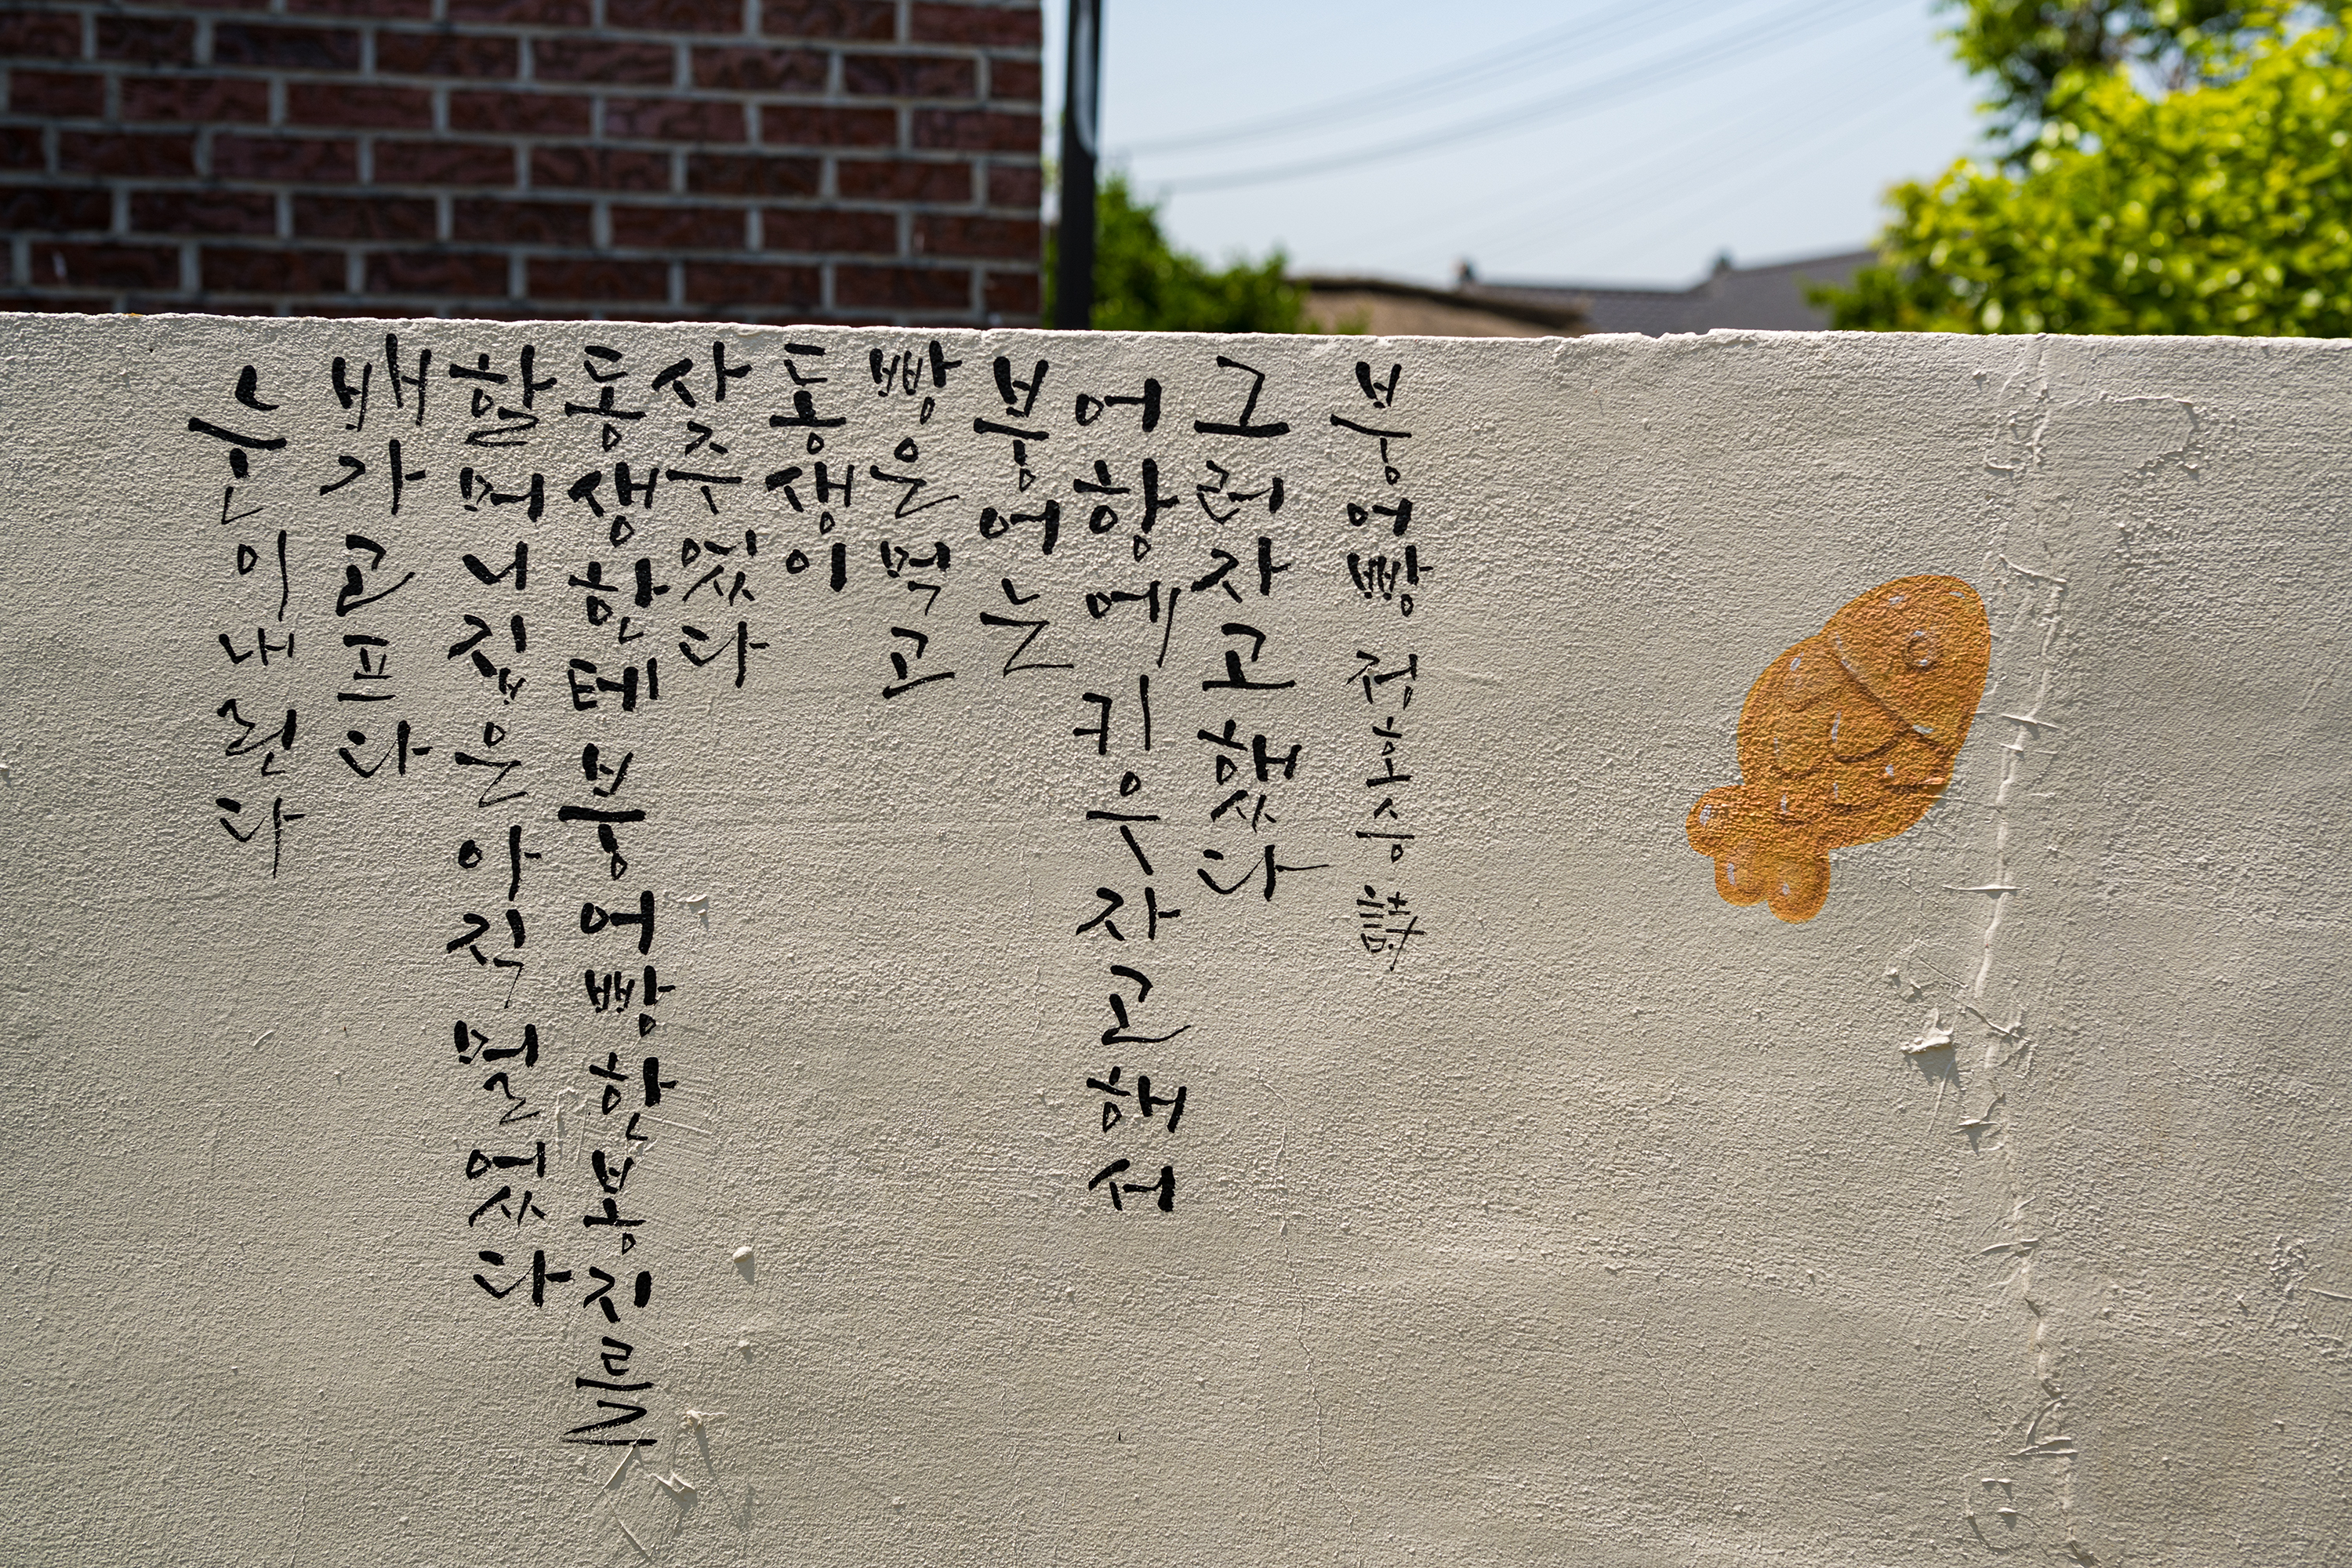 눈이 내린다
배가 고프다
할머니 집은 아직 멀었다
동생한테 붕어빵 한 봉지를
사주었다
동생이
빵은 먹고
붕어는
어항에 키우자고 해서
그러자고 했다
붕어빵 정호승 詩